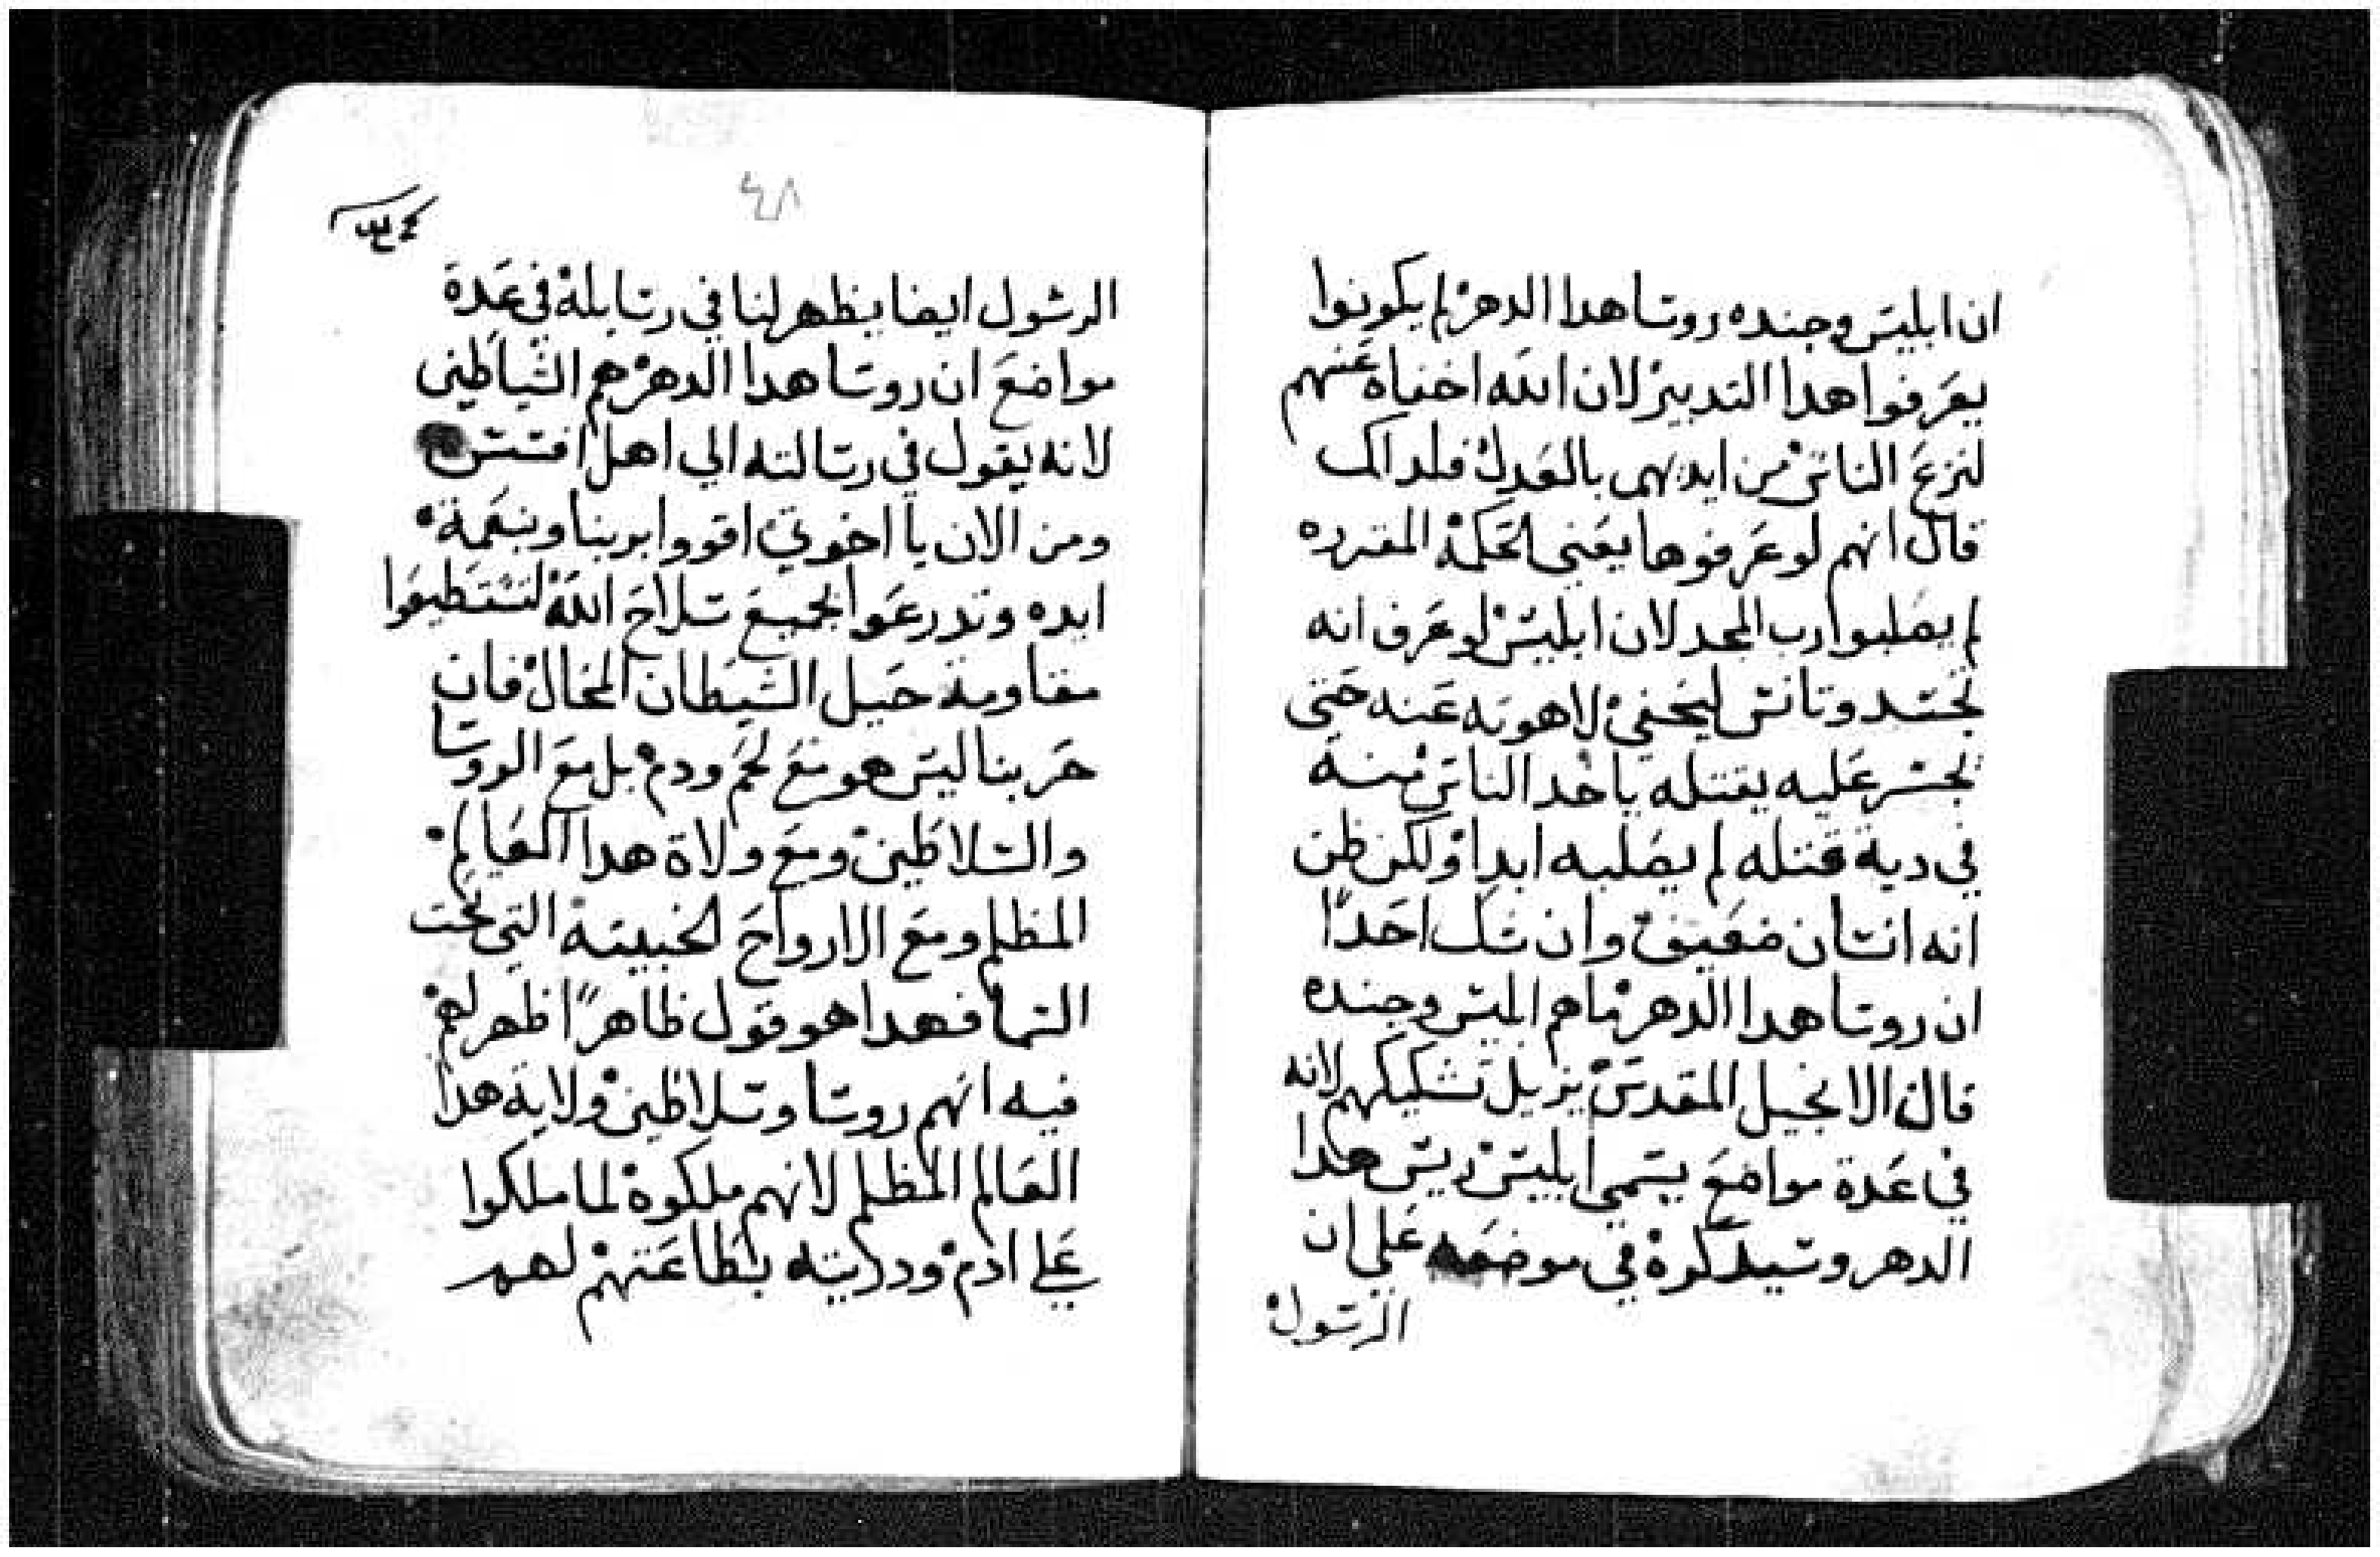 ان ابليس وجنده روسا هدا الدهر لم يكونوا
يعرفوا هدا التدبير لان الله اخفاه عنهم
لنزع الناس من ايديهم بالعدل فلداك
قال انهم لو عرفوها يعني الحكمة المقرره
لم يصلبوا رب المجد لان ابليس لو عرف انه
تجسد وتانس ليخفي لاهوته عنه حتى
تجسر عليه يقتله ياخد الناس منه
في دية قتله لم يصلبه ابدا ولكن ظن
انه انسان ضعيف وان شك احدًا
ان روسا هدا الدهر ما هم ابليس وجنده
قال الانجيل المقدس يزيل تشكيكهم لانه
في عدة مواضع يسمي ابليس ريس هدا
الدهر وسيدكره في موضعه علي ان
الرسول
٤٨
الرسول ايضا يظهر لنا في رسايله في عدة
مواضع ان روسا هدا الدهر هم الشياطين
لانه يقول في رسالته الي اهل افسس
ومن الان يا اخوتي اقووا بربنا وبنعمة
ايده وتدرعوا بجميع سلاح الله لتستطيعوا
مقاومة حيل الشيطان المحال فان
حربنا ليس هو مع لحم ودم بل مع الروسا
والسلاطين ومع ولاة هدا العالم
المظلم ومع الارواح الخبيته التي تحت
السما فهدا هو قول ظاهرًا اظهر لهم
فيه انهم روسا وسلاطين ولاية هدا
العالم المظلم لانهم ملكوه لما ملكوا
علي ادم ودريته بطاعتهم لهم